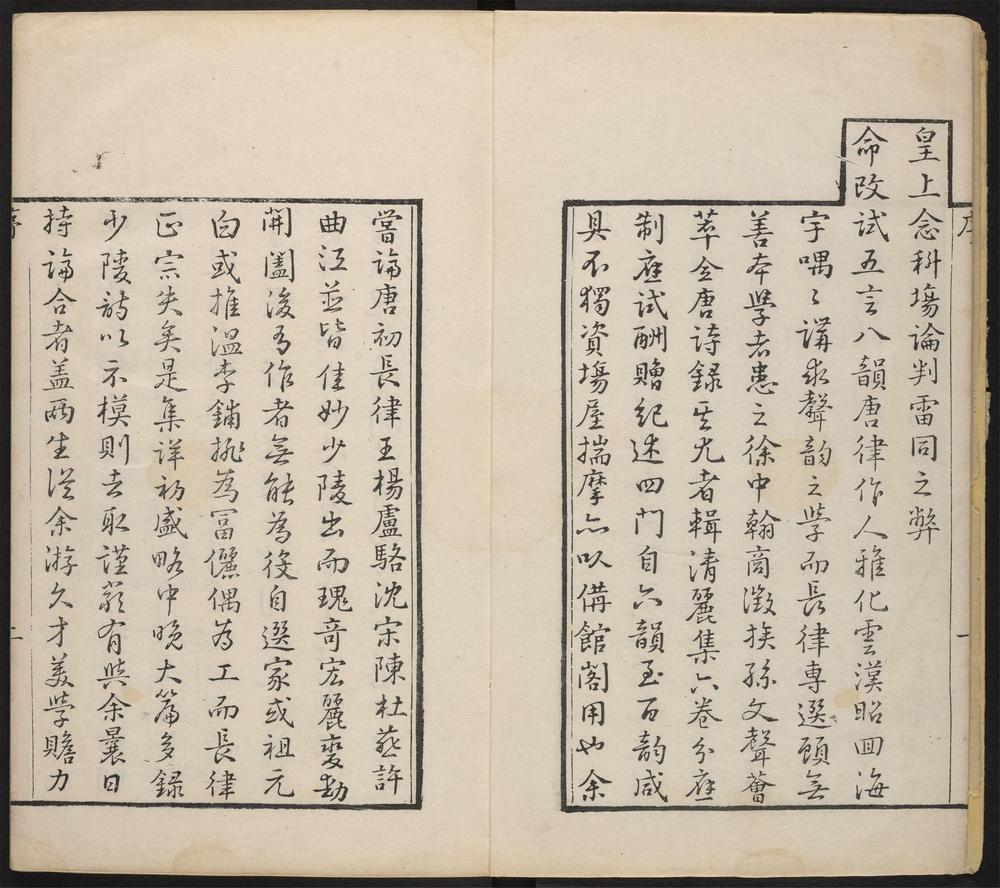 序
一
皇上念科塲論判雷同之弊
命改試五言八韻唐律作人雅化雲漢昭回海
宇喁〻講求聲韵之學而長律專選頋無
善本學者患之徐中翰商徵挨孫文聲薈
萃全唐詩録其尤者輯清麗集六卷分應
制應試酬贈紀述四門自六韻至百韵咸
具不獨資塲屋揣摩亦以備館閣用也余
嘗論唐初長律王楊盧駱沈宋陳杜燕許
曲江並皆佳妙少陵出而瑰奇宏麗變動
開闔後有作者無能為役自選家或祖元
白或推温李鋪排為富儷偶為工而長律
正宗失矣是集詳初盛略中晚大篇多録
少陵詩以示模則去取謹嚴有與余曩日
持論合者盖兩生從余游久才美學贍力
序
二